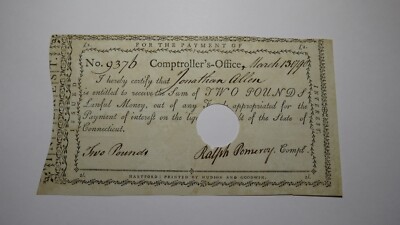 FOR THE PAYMENT OF
No. 9376 Comptroller's-Office, March 13 1790
I hereby certify that Jonathan Allen
is entitled to receive the Sum of TWO POUNDS
Lawful Money, out of any appropriated for the
Payment of interest on the of the State of
Connecticut.
Two Pounds Ralph Pomeroy Compt.
HARTFORD: PRINTED BY HUDSON AND GOODWIN.